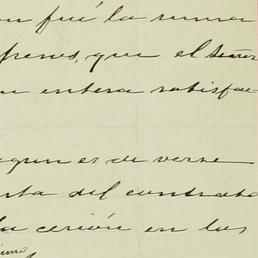 on fué la suma
pesos, que el Señor
su entera satisfac-
egun es de verse
rta del contrato
la cesión en los